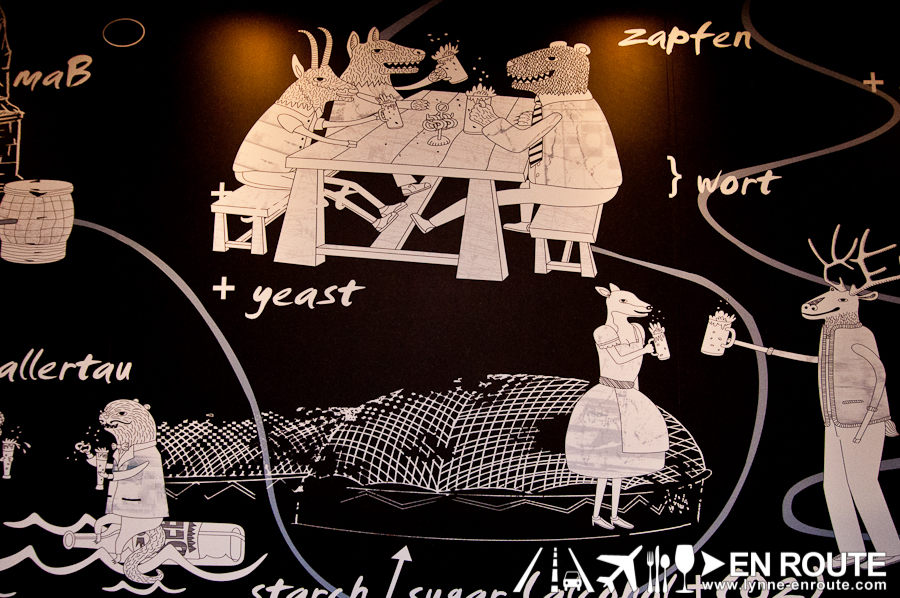 zapfen
maB
} wort
+ yeast
allertau
starch / sugar (alcohol + CO2)
EN ROUTE
www.lynne-enroute.com